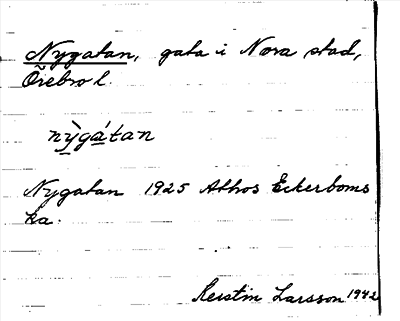 Nygatan, gata i Nora stad,
Örebro l.
nỳgátan
Nygatan 1925 Athos Eckerboms
ka.
Kerstin Larsson 1942